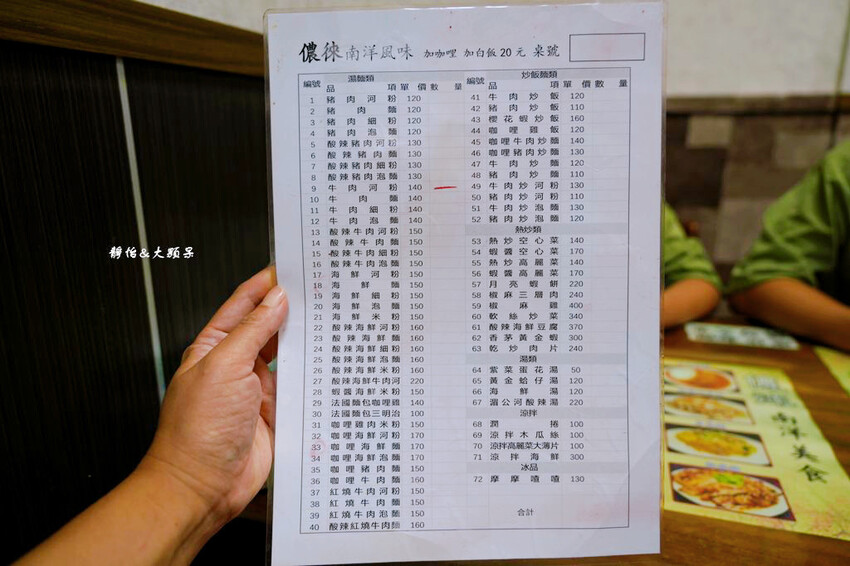 儂徠南洋風味 加咖哩 加白飯20元 桌號
編號 湯麵類 品項 單價 數量
1 豬肉河粉 120
2 豬肉麵 120
3 豬肉細粉 120
4 豬肉泡麵 120
5 酸辣豬肉河粉 130
6 酸辣豬肉麵 130
7 酸辣豬肉細粉 130
8 酸辣豬肉泡麵 130
9 牛肉河粉 140
10 牛肉麵 140
11 牛肉細粉 140
12 牛肉泡麵 140
13 酸辣牛肉河粉 150
14 酸辣牛肉麵 150
15 酸辣牛肉細粉 150
16 酸辣牛肉泡麵 150
17 海鮮河粉 150
18 海鮮麵 150
19 海鮮細粉 150
20 海鮮泡麵 150
21 海鮮米粉 150
22 酸辣海鮮河粉 160
23 酸辣海鮮麵 160
24 酸辣海鮮細粉 160
25 酸辣海鮮泡麵 160
26 酸辣海鮮米粉 160
27 酸辣海鮮牛肉河 220
28 蝦醬海鮮米粉 150
29 法國麵包咖哩雞 140
30 法國麵包三明治 100
31 咖哩雞肉米粉 150
32 咖哩海鮮河粉 170
33 咖哩海鮮麵 170
34 咖哩海鮮泡麵 170
35 咖哩豬肉麵 150
36 咖哩牛肉麵 160
37 紅燒牛肉河粉 150
38 紅燒牛肉麵 150
39 紅燒牛肉泡麵 150
40 酸辣紅燒牛肉麵 160
編號 炒飯麵類 品項 單價 數量
41 牛肉炒飯 120
42 豬肉炒飯 110
43 櫻花蝦炒飯 160
44 咖哩雞飯 120
45 咖哩牛肉炒麵 140
46 咖哩豬肉炒麵 130
47 牛肉炒麵 120
48 豬肉炒麵 110
49 牛肉炒河粉 130
50 豬肉炒河粉 110
51 牛肉炒泡麵 130
52 豬肉炒泡麵 120
熱炒類
53 熱炒空心菜 140
54 蝦醬空心菜 170
55 熱炒高麗菜 140
56 蝦醬高麗菜 170
57 月亮蝦餅 220
58 椒麻三層肉 240
59 椒麻雞 400
60 軟絲炒菜 340
61 酸辣海鮮豆腐 370
62 香茅黃金蝦 300
63 乾炒肉片 240
湯類
64 紫菜蛋花湯 50
65 黃金蛤仔湯 120
66 海鮮湯 120
67 湄公河酸辣湯 220
涼拌
68 潤捲 100
69 涼拌木瓜絲 100
70 涼拌高麗菜大薄片 100
71 涼拌海鮮 300
冰品
72 摩摩喳喳 130
合計
靜怡&大顆呆
南洋美食